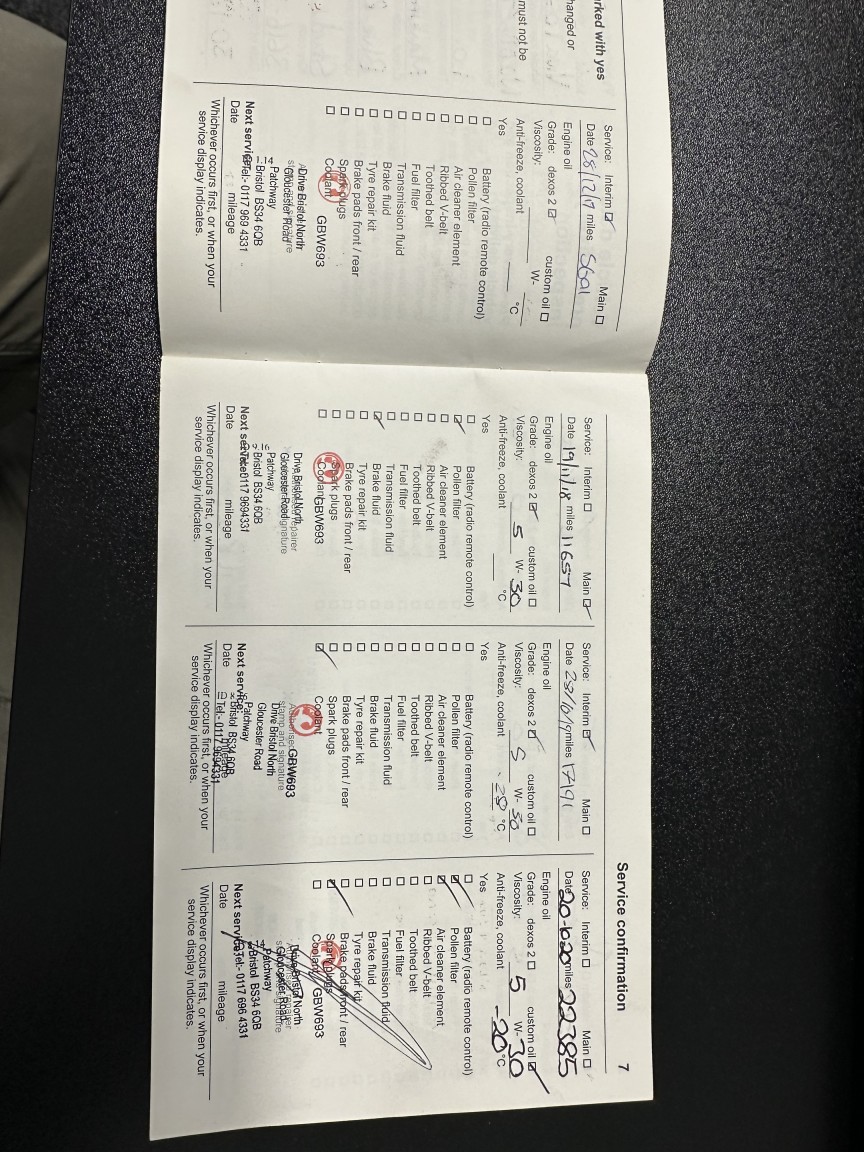 rked with yes
hanged or
must not be
Service: Interim ☑ Main ☐
Date 28/12/17 miles 5601
Engine oil
Grade: dexos 2 ☑ custom oil ☐
Viscosity: W-
Anti-freeze, coolant °C
Yes
☐ Battery (radio remote control)
☐ Pollen filter
☐ Air cleaner element
☐ Ribbed V-belt
☐ Toothed belt
☐ Fuel filter
☐ Transmission fluid
☐ Brake fluid
☐ Tyre repair kit
☐ Brake pads front / rear
☐ Spark plugs
☐ Coolant
GBW693
Drive Bristol North
Gloucester Road
Patchway
Bristol BS34 6QB
Tel:- 0117 969 4331
Next service:
Date mileage
Whichever occurs first, or when your
service display indicates.
Service: Interim ☐ Main ☑
Date 19/11/18 miles 11657
Engine oil
Grade: dexos 2 ☑ custom oil ☐
Viscosity: 5 W- 30
Anti-freeze, coolant °C
Yes
☐ Battery (radio remote control)
☑ Pollen filter
☐ Air cleaner element
☐ Ribbed V-belt
☐ Toothed belt
☐ Fuel filter
☐ Transmission fluid
☑ Brake fluid
☐ Tyre repair kit
☐ Brake pads front / rear
☐ Spark plugs
☐ Coolant
GBW693
Drive Bristol North
Gloucester Road
Patchway
Bristol BS34 6QB
0117 9694331
Next service:
Date mileage
Whichever occurs first, or when your
service display indicates.
Service confirmation 7
Service: Interim ☑ Main ☐
Date 23/10/19 miles 17191
Engine oil
Grade: dexos 2 ☑ custom oil ☐
Viscosity: 5 W- 30
Anti-freeze, coolant °C
Yes
☐ Battery (radio remote control)
☐ Pollen filter
☐ Air cleaner element
☐ Ribbed V-belt
☐ Toothed belt
☐ Fuel filter
☐ Transmission fluid
☐ Brake fluid
☐ Tyre repair kit
☐ Brake pads front / rear
☐ Spark plugs
☑ Coolant
GBW693
stamp and signature
Drive Bristol North
Gloucester Road
Patchway
Bristol BS34 6QB
Tel:- 0117 9694331
Next service:
Date mileage
Whichever occurs first, or when your
service display indicates.
Service: Interim ☐ Main ☐
Date 20-10-20 miles 22385
Engine oil
Grade: dexos 2 ☐ custom oil ☑
Viscosity: 5 W- 30
Anti-freeze, coolant -20 °C
Yes
☐ Battery (radio remote control)
☑ Pollen filter
☑ Air cleaner element
☐ Ribbed V-belt
☐ Toothed belt
☐ Fuel filter
☐ Transmission fluid
☐ Brake fluid
☐ Tyre repair kit
☐ Brake pads front / rear
☑ Spark plugs
☐ Coolant
GBW693
Drive Bristol North
Gloucester Road
Patchway
Bristol BS34 6QB
Tel:- 0117 696 4331
Next service:
Date mileage
Whichever occurs first, or when your
service display indicates.